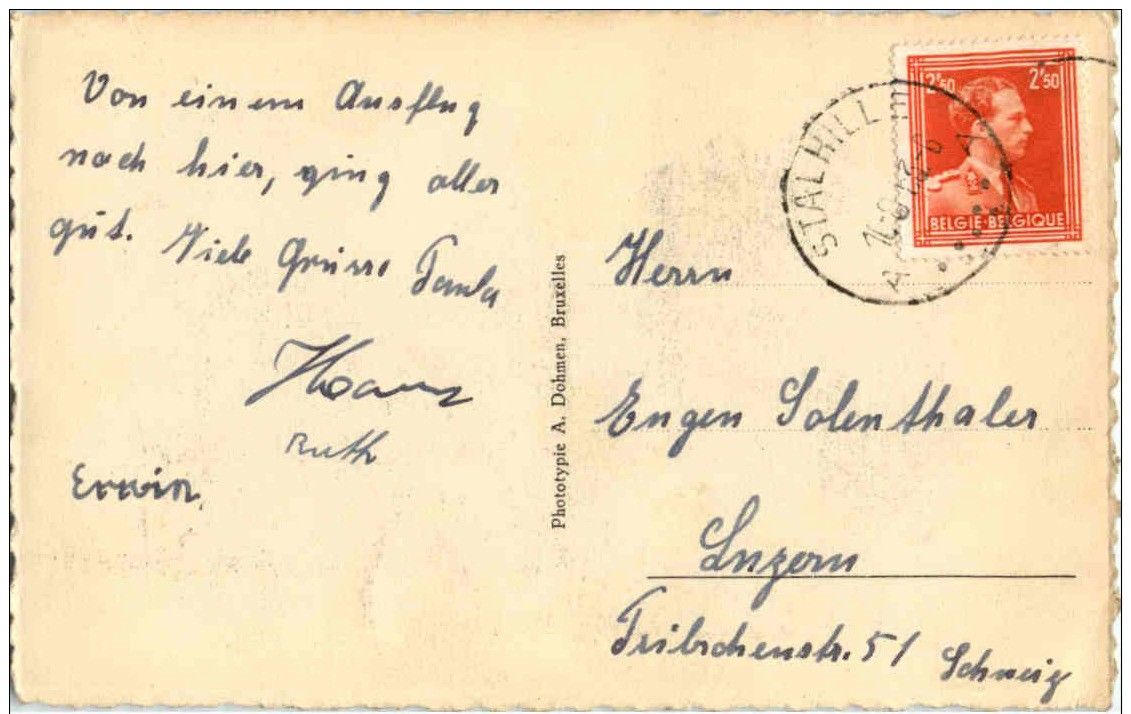 Von einem Ausflug
nach hier, ging alles
gut. Viele Grüsse Paula
Hans
Ruth
Erwin.
Phototypie A. Dohmen, Bruxelles
2'50 2'50
BELGIE-BELGIQUE
STALHILLE
Herrn
Eugen Solenthaler
Luzern
Tribschenstr. 51
Schweiz